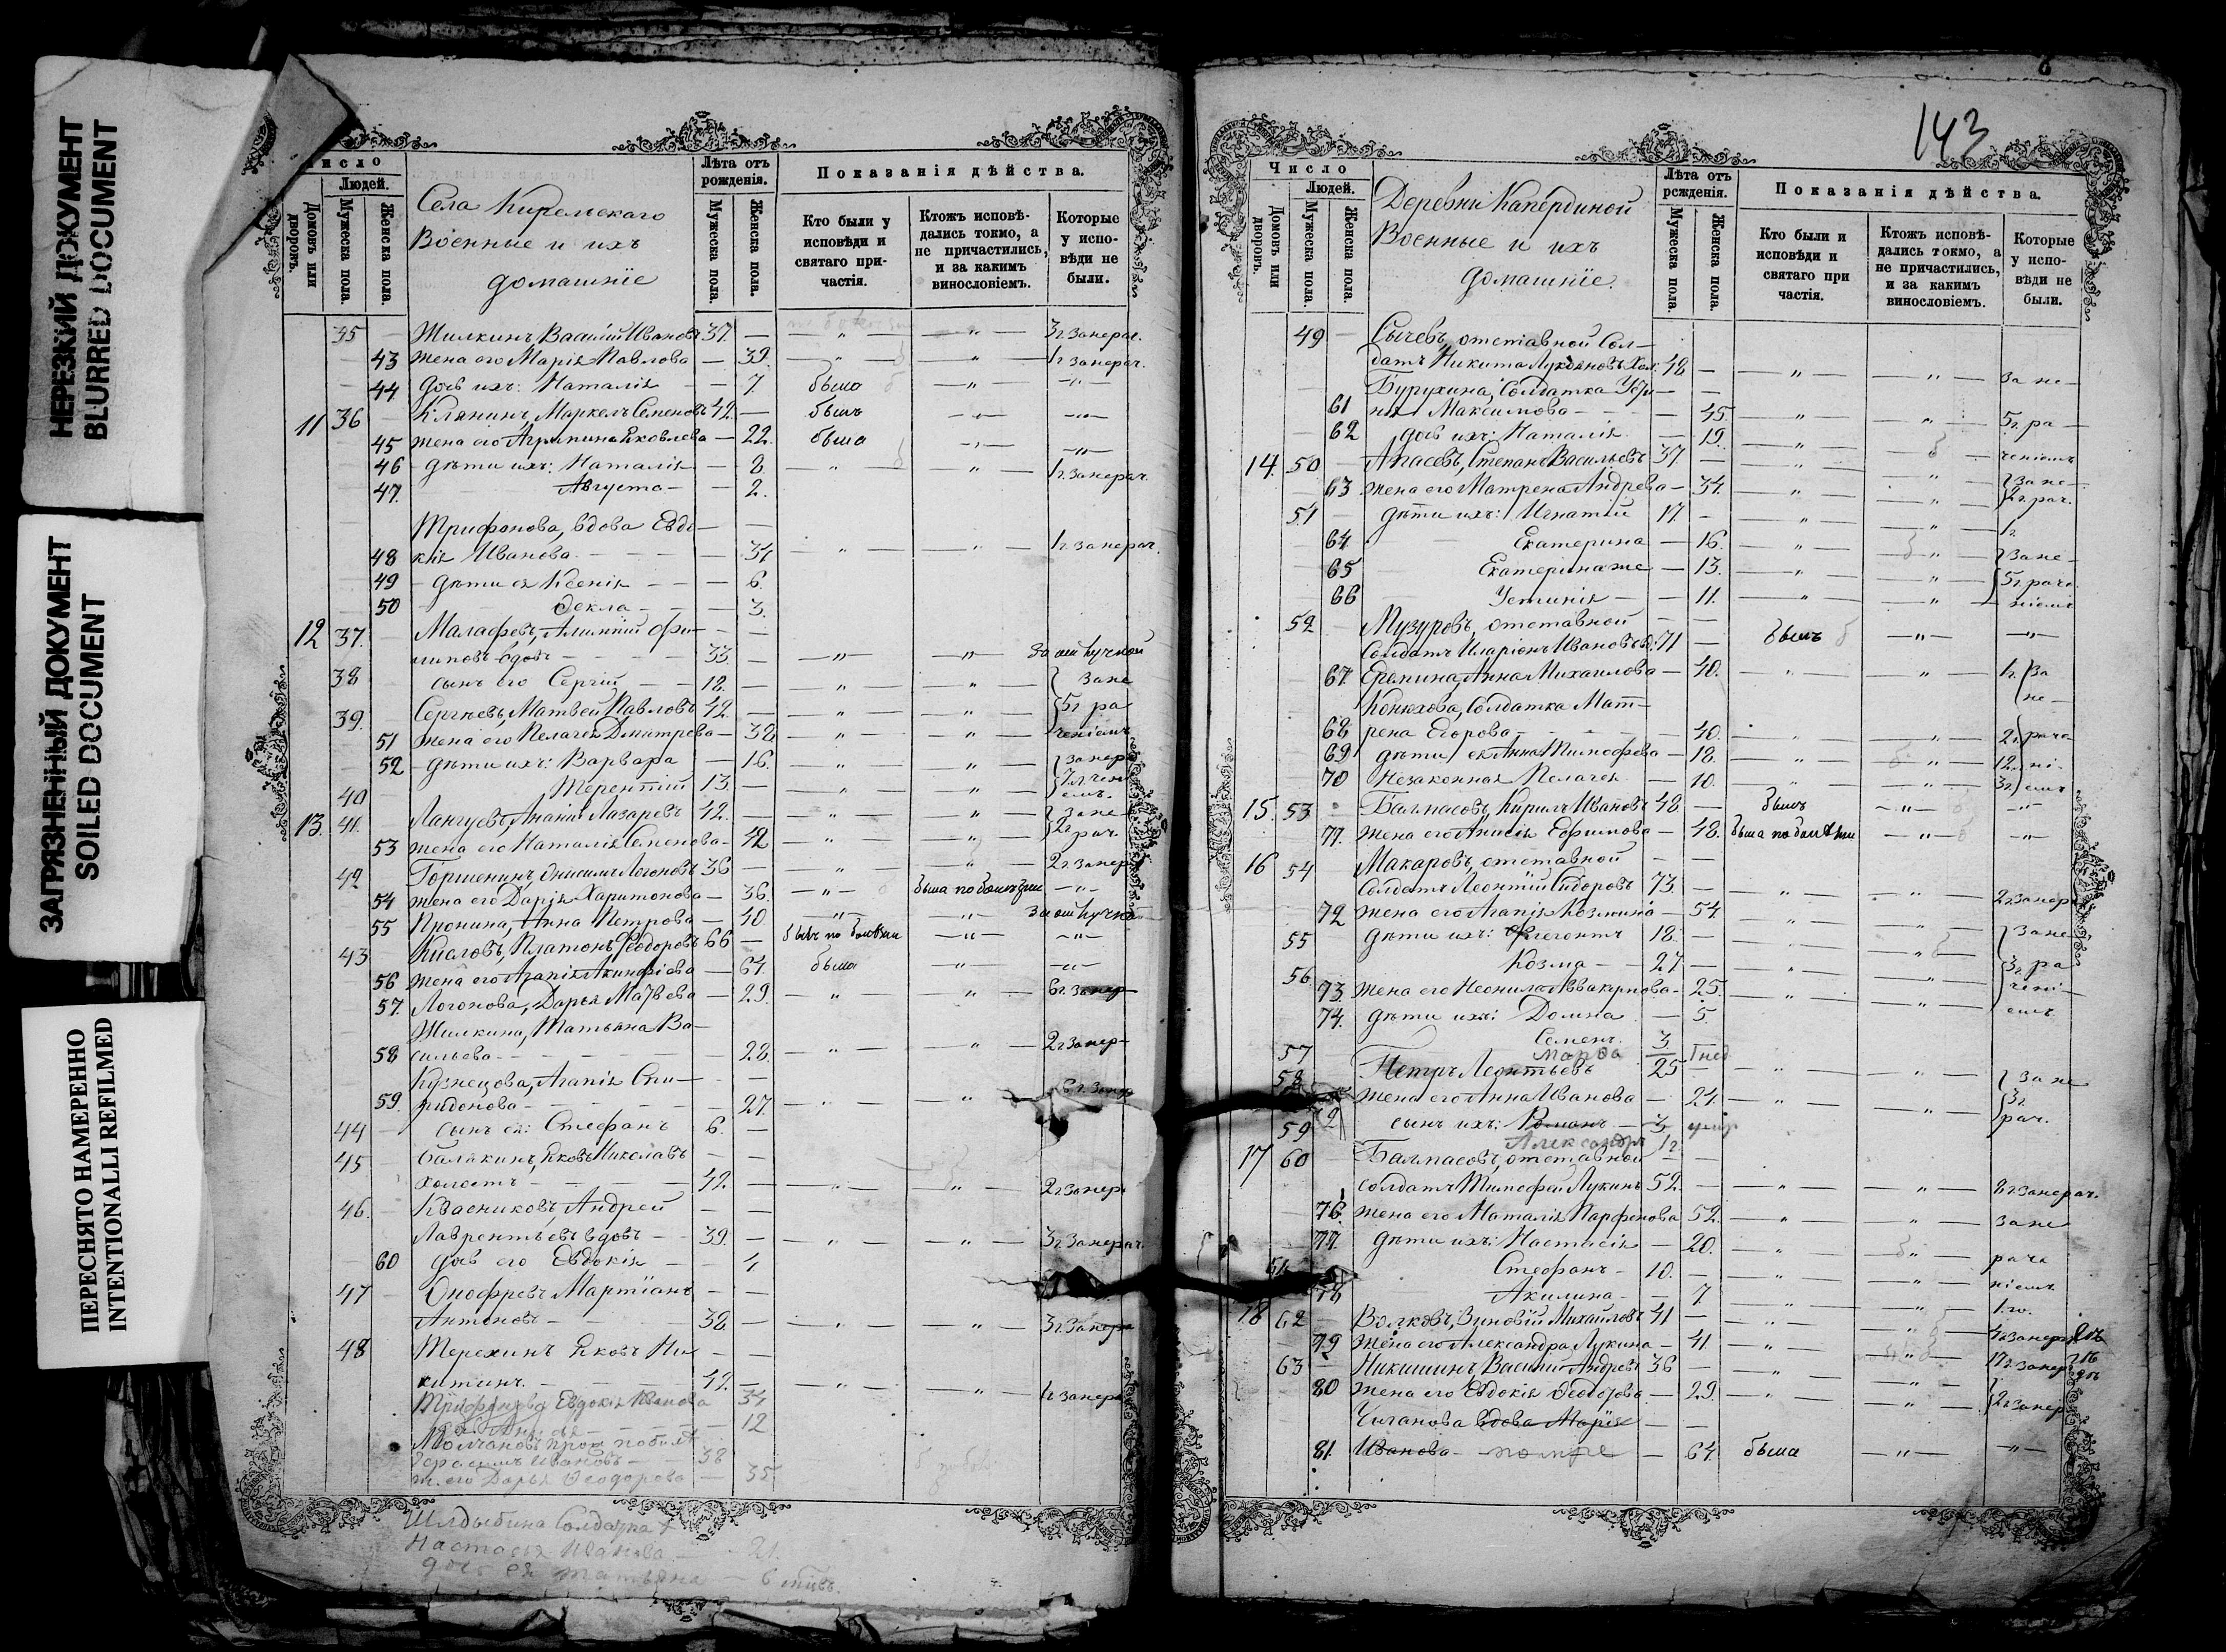 НЕРЕЗКИЙ ДОКУМЕНТ
BLURRED DOCUMENT
ЗАГРЯЗНЕННЫЙ ДОКУМЕНТ
SOILED DOCUMENT
ПЕРЕСНЯТО НАМЕРЕННО
INTENTIONALLI REFILMED
Число
Людей.
Домовъ или дворовъ.
Мужеска пола.
Женска пола.
Села Киремскаго
Военные и ихъ
домашніе
Лѣта отъ рожденія.
Мужеска пола.
Женска пола.
Показанія дѣйства.
Кто были у исповѣди и святаго причастія.
Ктожъ исповѣдались токмо, а не причастились, и за какимъ винословіемъ.
Которые у исповѣди не были.
35 Жилкинъ, Василій Ивановъ 37. — " — " — 3 г. за нерач.
43 жена его Марія Павлова — 39. — " — " — 1 г. за нерач.
44 дочь ихъ: Наталія — 7 была — " — — " —
11 36 Клянинъ, Маркелъ Семеновъ 42. — былъ — " — — " —
45 жена его Агрипина Яковлева — 22. была — " — — " —
46 дѣти ихъ: Наталія — 8 " " 1 г. за нерач.
47. Августа — 2.
Трифонова, вдова Евдо—
48 кія Иванова — 34 — " — " — 1 г. за нерач.
49 дѣти ея Ксенія — 6.
50 Ѳекла — 3.
12 37. Малафеевъ, Алимпій Фи—
липовъ вдовъ — 33. — " — " — За отлучкой
38 сынъ его Сергій — 12. — " — " — за не
39. Сергѣевъ, Матвей Павловъ 42. — " — " — 5 г. ра
51 жена его Пелагея Дмитрева — 38 — " — " — ченіемъ
52 дѣти ихъ: Варвара — 16. — " — " — за нера
40 Терентій 13. — " — " —
13. 41. Лангуевъ, Ананій Лазаревъ 42. — " — " — за не
53 жена его Наталія Семенова — 42 — " — " — 2 г. рач.
42 Горшенинъ, Онисимъ Логоновъ 36 — " — " — 2 г. за нер
54 жена его Дарія Харитонова — 36. — " — была по болѣзни — " —
55 Пронина, Анна Петрова — 40 — " — " — За отлучкой
43 Кисловъ, Платонъ Ѳеодоровъ 66 — былъ по болѣзни — " — — " —
56 жена его Агапія Акинфіева — 64. была — " — — " —
57. Логонова, Дарья Матвева — 29. — " — " — 6 г. за нер—
Жилкина, Татьяна Ва—
58 сильева — 28. — " — " — 2 г. за нер—
Кузнецова, Агапія Спи—
59. ридонова — 27. — " — " — 6 г. за нер
44 сынъ ея: Стефанъ 6. —
45 Балакинъ, Яковъ Николаевъ — —
холостъ — 42. — " — " — 2 г. за нер.
46. Квасниковъ, Андрей — —
Лаврентьевъ вдовъ — 39. — " — " — 3 г. за нерач.
60 дочь его Евдокія — 4
47 Онофревъ Мартіанъ — —
Антоновъ — 38. — " — " — 3 г. за нер
48 Терехинъ Яковъ Ни— — —
китинъ. — 42. — " — " — 1 г. за нера
Трифонова Евдокія Иванова 34
12
Герасимъ Ивановъ — 38
ж. его Дарья Ѳеодорова — 35
Шлдыбина Солдатка
Настасья Иванова — 21.
дочь ея Татьяна — 6 мѣсв.
143
Число
Людей.
Домовъ или дворовъ.
Мужеска пола.
Женска пола.
Деревни Капердиной
Военные и ихъ
домашніе.
Лѣта отъ рожденія.
Мужеска пола.
Женска пола.
Показанія дѣйства.
Кто были и исповѣди и святаго при частія.
Ктожъ исповѣдались токмо, а не причастились, и за какимъ винословіемъ.
Которые у исповѣди не были.
49 — Сычевъ, отставной Сол—
датъ Никита Лукояновъ Хол. 48 — " — " — за не—
Бурухина, Солдатка Усти— —
61 нія Максимова — 45. — " — " — 5 г. ра—
62 дочь ихъ: Наталія — 19. — " — ченіемъ
14. 50 — Агасевъ, Степанъ Васильевъ 37. — " — " — за не—
63 жена его Матрена Андрева — 34. — " — " — 2 г. рач.
51 — дѣти ихъ: Игнатій 17. — " — " — 1 г.
64 Екатерина — 16. — " — " — за не—
65 Екатерина же — 13. — " — " — 5 г. раче
66 Устинія — 11. — " — " — ніемъ
52. Музуровъ, отставной — —
Солдатъ Иларіонъ Ивановъ вд. 71 — былъ — " — — " —
67. Ерапина, Анна Михаилова — 40. — " — " — 1 г. за
Конюхова, Солдатка Мат— не—
68 рена Егорова — 40. — " — " — 2 г. раче
69 дѣти ея Анна Тимофеева — 18. — " — " — 12 г. ні—
70 Незаконная Пелагея — 10. — " — " — 3 г. емъ
15. 53 Балмасовъ, Кирилъ Ивановъ 48 — былъ — " — — " —
71. жена его Анисія Ефимова — 48. была по болѣзни — " — — " —
16 54 Макаровъ, отставной — —
Солдатъ Леонтій Сидоровъ 73. — " — " — 2 г. за нер
72 жена его Агапія Козмина — 54. — " — " — за не
55 дѣти ихъ: Флегонтъ 18. — " — " — 3 г. ра
56 Козма — 27 — " — " — чені—
73. жена его Неонила Аввакумова — 25. — " — " — емъ
74. дѣти ихъ: Домна — 5.
57 Семенъ. 3
Марфа — 1 нед
58 Петръ Леонтьевъ 25 — " — " — за не
жена его Анна Иванова — 24. — " — " — 3 г. рач.
59 сынъ ихъ: Романъ — 3 умер
Александръ 1 г.
17 60 Балмасовъ, отставной — —
солдатъ Тимофей Лукинъ 52. — " — " — 8 г. за нерач.
76. жена его Наталія Парфенова 52. — " — " — за не
77. дѣти ихъ: Настасія — 20. — " — " — раче
61 Стефанъ — 10. — " — " — ніемъ
78 Акилина — 7. — " — " — 1 го.
18 62 — Волковъ, Зиновій Михаиловъ 41 — " — " —
79 жена его Александра Лукина — 41. — " — " —
63 — Никишинъ, Василій Андревъ 36 — " — " —
80 жена его Евдокія Ѳеодорова — 29. — " — " — 2 г. за нер
Чиганова вдова Марія — —
81. Иванова — помре — 64. была — " — — " —